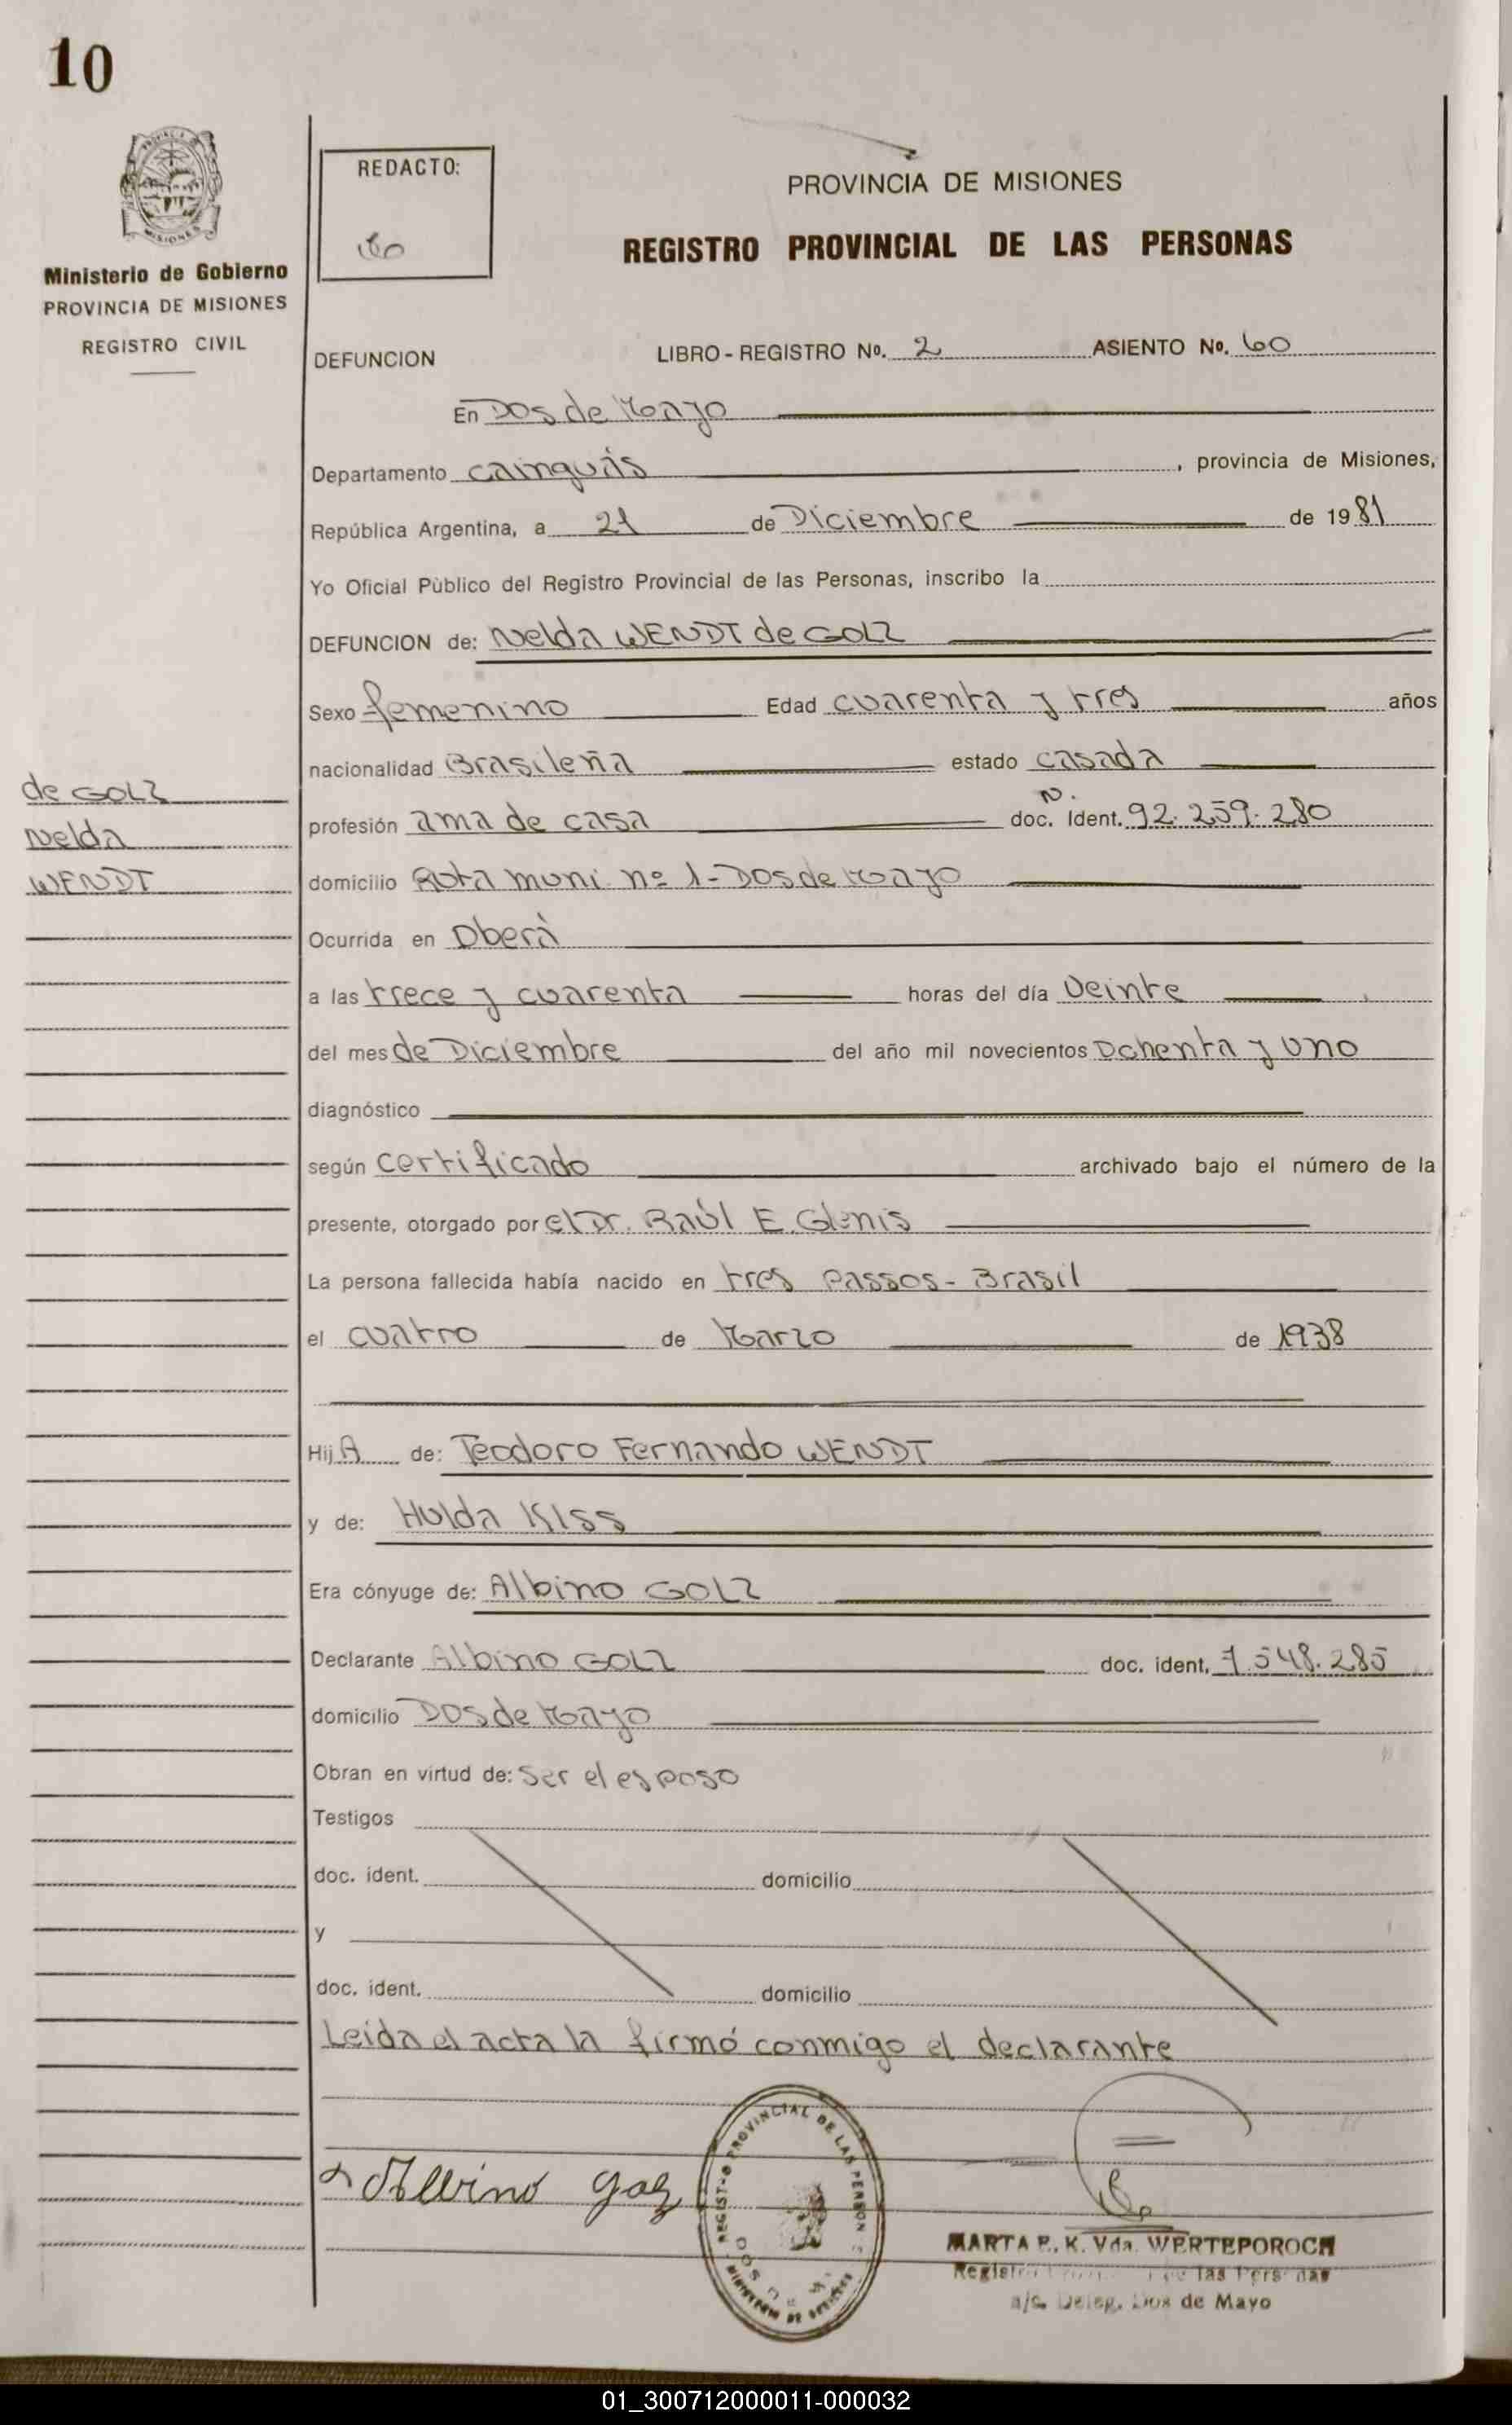 10
REDACTO:
PROVINCIA DE MISIONES
REGISTRO PROVINCIAL DE LAS PERSONAS
MISIONES
Ministerio de Gobierno
PROVINCIA DE MISIONES
REGISTRO CIVIL
DEFUNCION LIBRO - REGISTRO No. 2 ASIENTO No. 60
En Dos de Mayo
Departamento Cainguás, provincia de Misiones,
República Argentina, a 21 de Diciembre de 1981
Yo Oficial Pùblico del Registro Provincial de las Personas, inscribo la
DEFUNCION de: Nelda WENDT de GOLZ
Sexo femenino Edad cuarenta y tres años
nacionalidad Brasileña estado casada
de GOLZ
Nelda
WENDT
profesión ama de casa doc. N. Ident. 92.259.280
domicilio Ruta muni. nº 1 - Dos de Mayo
Ocurrida en Oberà
a las trece y cuarenta horas del día Veinte
del mes de Diciembre del año mil novecientos Ochenta y uno
diagnóstico
según certificado archivado bajo el número de la
presente, otorgado por el Dr. Raúl E. Glinis
La persona fallecida había nacido en tres Passos - Brasil
el cuatro de Marzo de 1938
Hij A de: Teodoro Fernando WENDT
y de: Hulda KISS
Era cónyuge de: Albino GOLZ
Declarante Albino GOLZ doc. ident. 7.548.285
domicilio Dos de Mayo
Obran en virtud de: Ser el esposo
Testigos
doc. ident. domicilio
y
doc. ident. domicilio
Leida el acta la firmó conmigo el declarante
Albino Golz
REGISTRO PROVINCIAL DE LAS PERSON
MARTA E. K. Vda. WERTEPOROCH
Registro las Personas
a/c. Deleg. Dos de Mayo
01_300712000011-000032